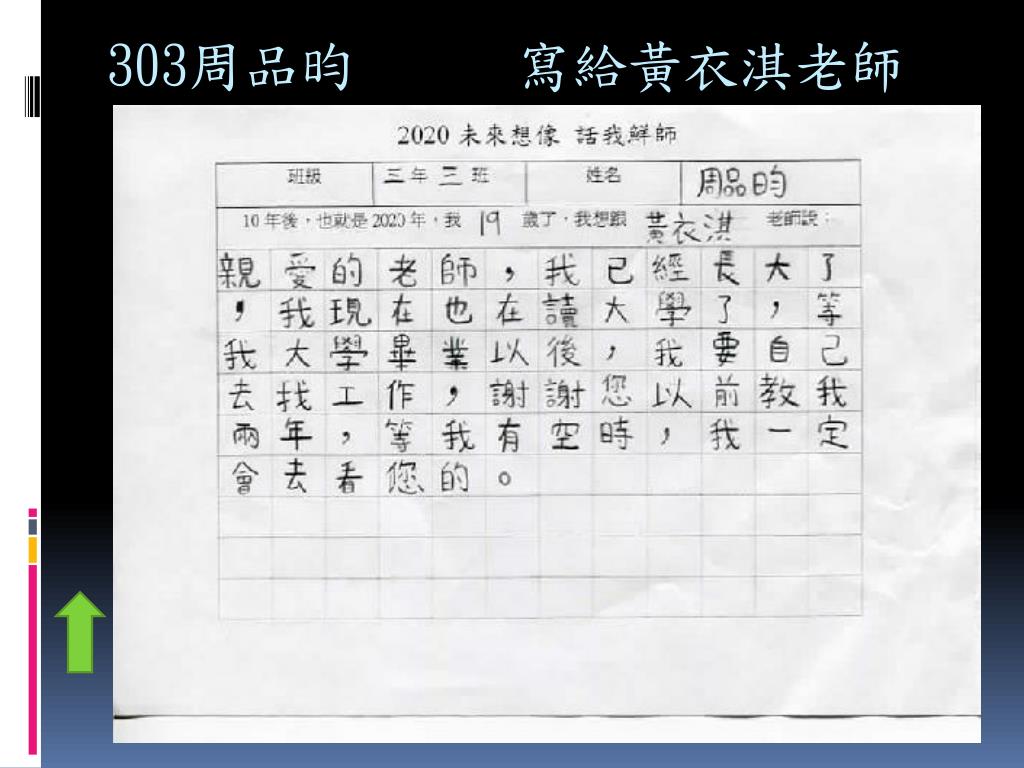 303周品昀 寫給黃衣淇老師
2020 未來想像 話我鮮師
班級 三 年 三 班 姓名 周品昀
10 年後，也就是 2020 年，我 19 歲了，我想跟 黃衣淇 老師說：
親愛的老師，我已經長大了
，我現在也在讀大學了，等
我大學畢業以後，我要自己
去找工作，謝謝您以前教我
兩年，等我有空時，我一定
會去看您的。